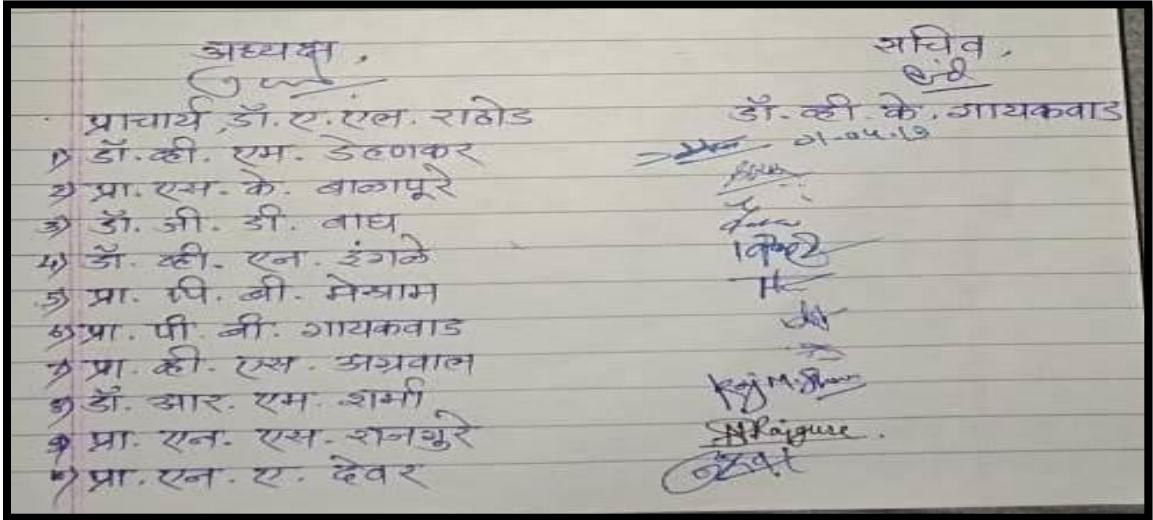 अध्यक्ष, सचिव,
प्राचार्य डॉ. ए. एल. राठोड डॉ. व्ही. के. गायकवाड
१) डॉ. व्ही. एम. डेहणकर
२) प्रा. एस. के. बाळापूरे
३) डॉ. जी. डी. वाघ
४) डॉ. व्ही. एन. इंगळे
५) प्रा. पि. बी. मेश्राम
६) प्रा. पी. बी. गायकवाड
७) प्रा. व्ही. एस. अग्रवाल
८) डॉ. आर. एम. शर्मा Raj M.
९) प्रा. एन. एस. राजगुरे Rajgure.
१०) प्रा. एन. ए. देवर